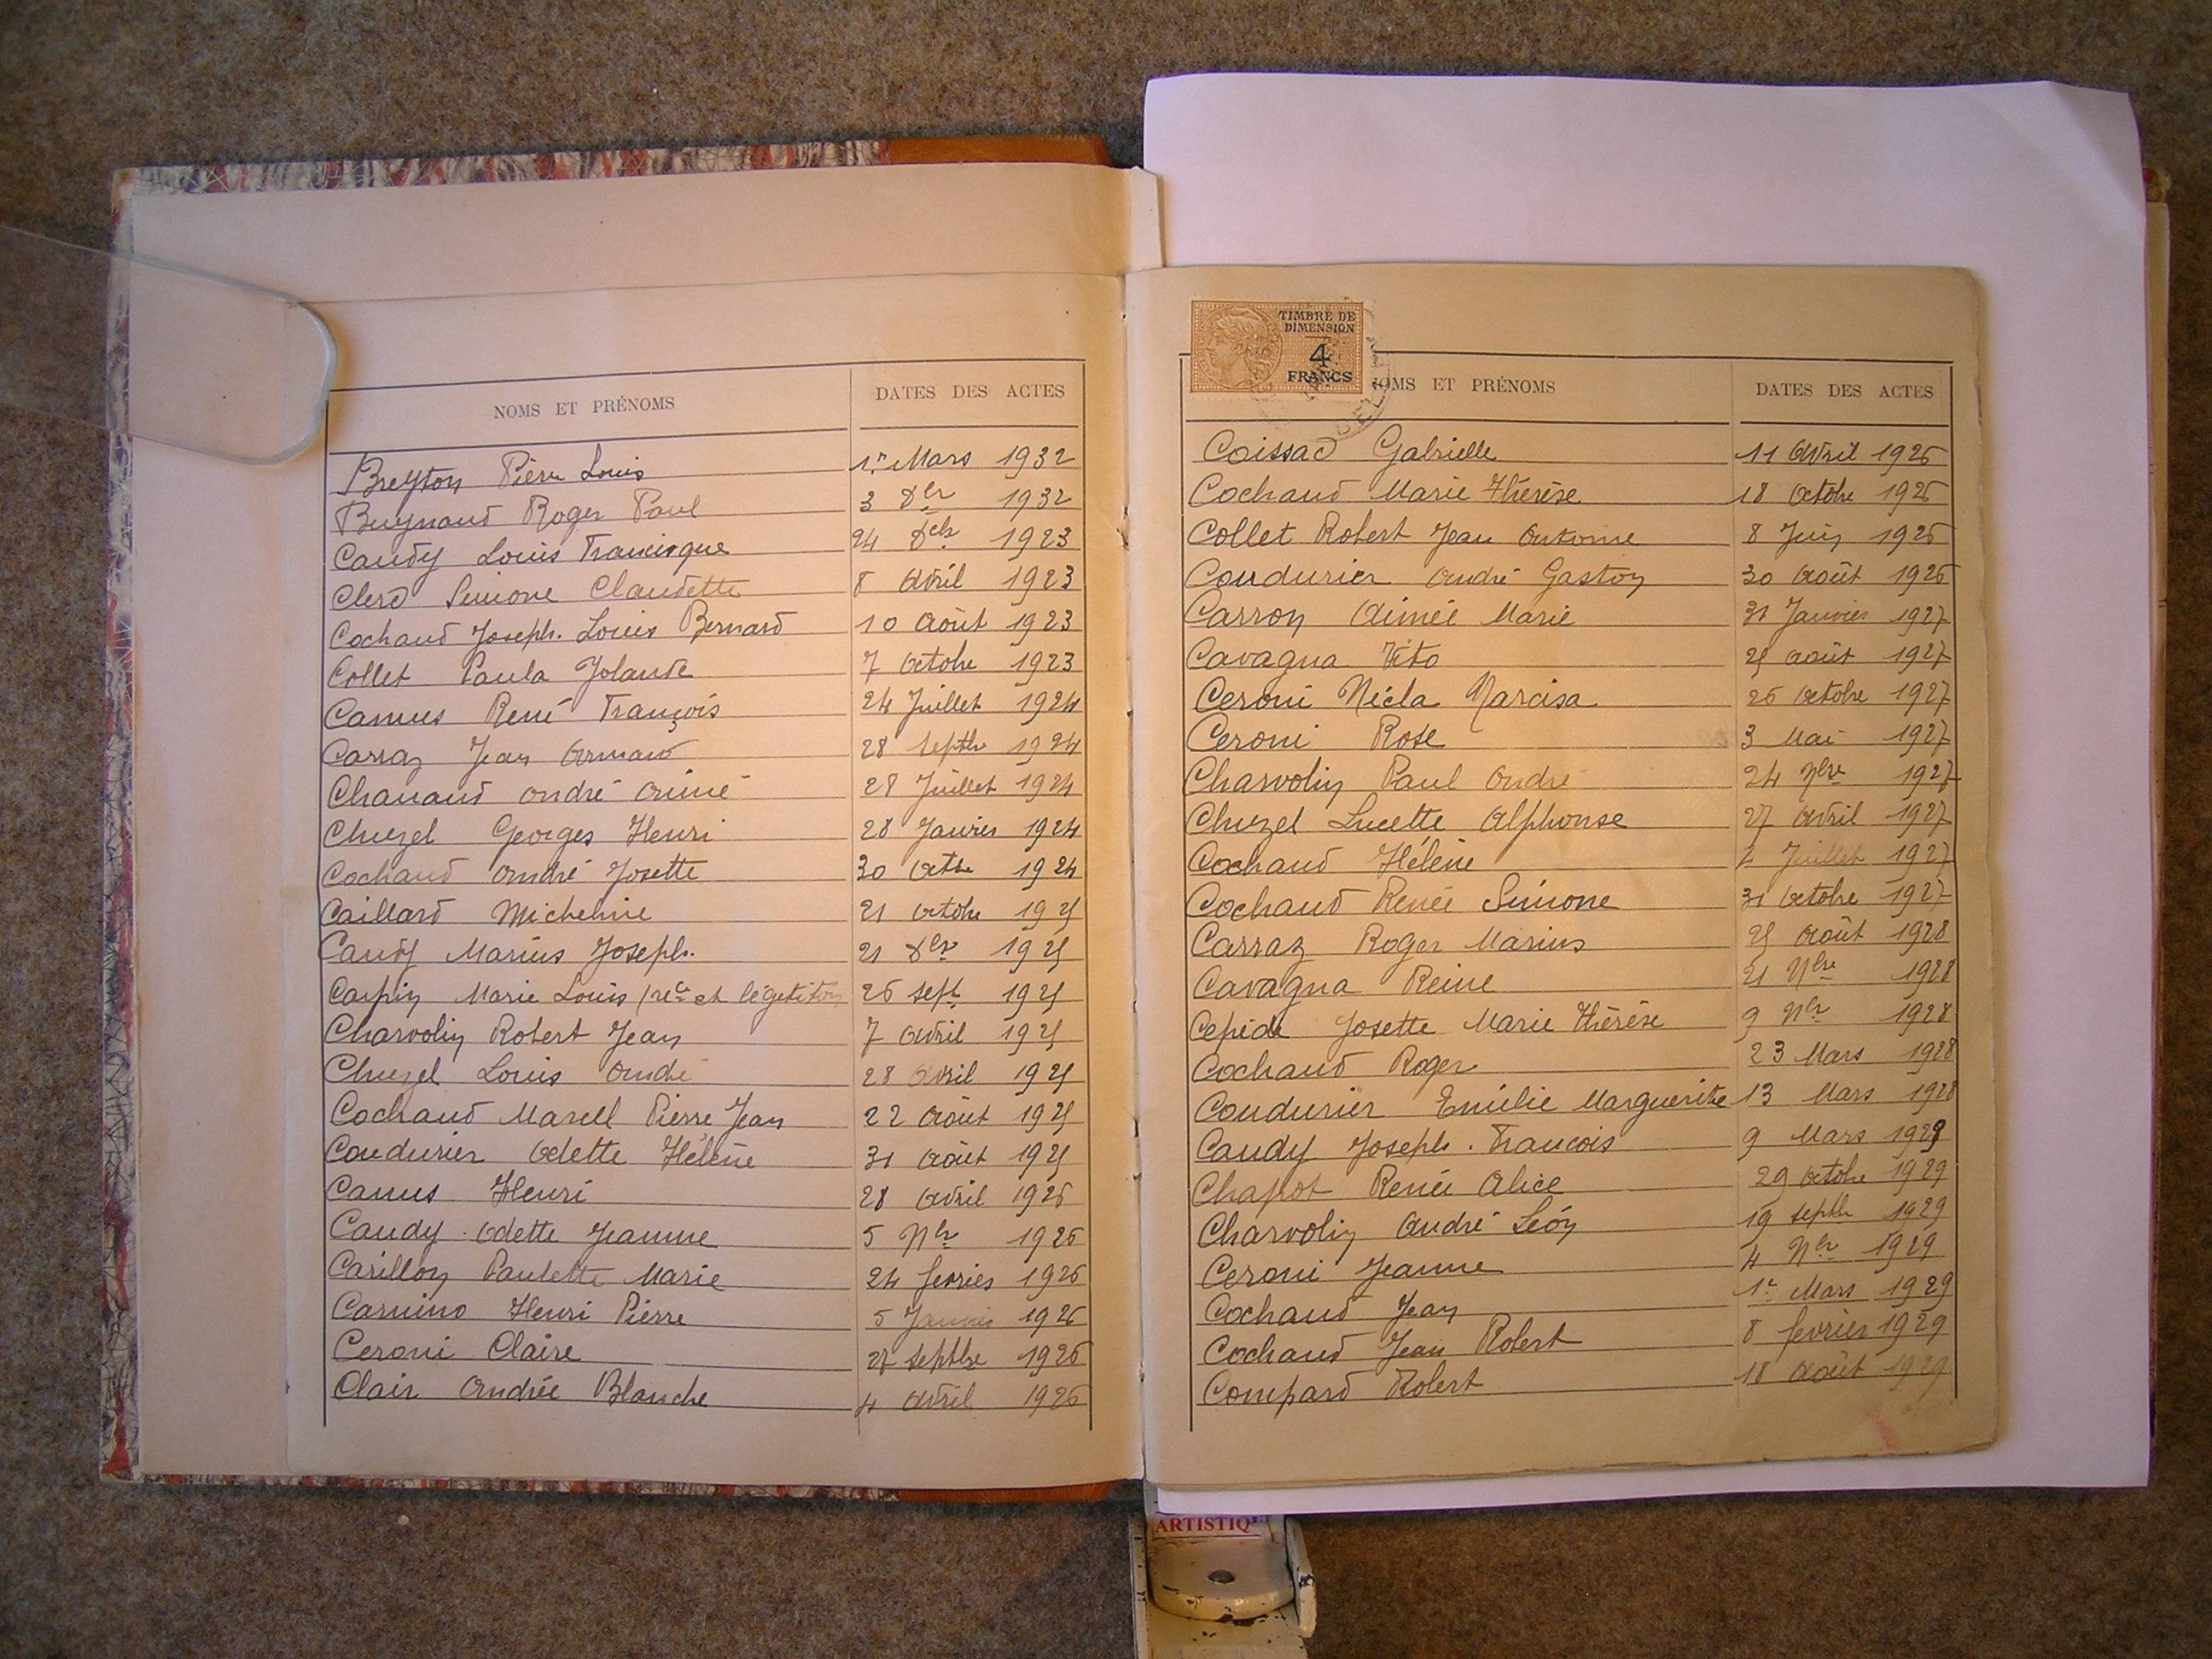 NOMS ET PRÉNOMS DATES DES ACTES
Breyton Pière Louis 1er Mars 1932
Buynaud Roger Paul 3 Dbr 1932
Caudy Louis Francisque 24 Dcbr 1923
Clerc Simone Claudette 8 Avril 1923
Cochaud Joseph Louis Bernard 10 Août 1923
Collet Paula Yolande 7 Octobre 1923
Camus René François 24 Juillet 1924
Carraz Jean Armand 28 Septbr 1924
Chanaud André Aimé 28 Juillet 1924
Chuzel Georges Henri 28 Janvier 1924
Cochaud André Josette 30 Octbre 1924
Caillard Micheline 21 Octobre 1925
Caudy Marius Joseph 21 Dbr 1925
Carpin Marie Louis 26 Sept 1925
Charvolin Robert Jean 7 Avril 1925
Chuzel Louis André 28 Avril 1925
Cochaud Marcell Pierre Jean 22 Août 1925
Coudurier Odette Hélène 31 Août 1925
Camus Henri 28 Avril 1926
Caudy Odette Jeanne 5 Nbr 1926
Carillon Paulette Marie 24 février 1926
Carnino Henri Pierre 5 Janvier 1926
Ceroni Claire 27 Septbre 1926
Clair Andrée Blanche 4 Avril 1926
TIMBRE DE
DIMENSION
4
FRANCS
NOMS ET PRÉNOMS DATES DES ACTES
Coissac Gabrielle 11 Avril 1926
Cochaud Marie Thérèse 18 Octobre 1926
Collet Robert Jean Antoine 8 Juin 1926
Coudurier André Gaston 30 Août 1926
Carron Aimée Marie 31 Janvier 1927
Cavagna Vito 25 Août 1927
Ceroni Nécla Narcisa 26 Octobre 1927
Ceroni Rose 3 Mai 1927
Charvolin Paul André 24 Nbre 1927
Chuzel Lucette Alphonse 27 Avril 1927
Cochaud Hélène 2 Juillet 1927
Cochaud Renée Simone 31 Octobre 1927
Carraz Roger Marius 25 Août 1928
Cavagna Reine 21 Nbre 1928
Cepède Josette Marie Thérèse 9 Nbr 1928
Cochaud Roger 23 Mars 1928
Coudurier Emilie Marguerite 13 Mars 1928
Caudy Joseph François 9 Mars 1929
Chapot Renée Alice 29 Octobre 1929
Charvolin André Léon 19 Septbr 1929
Ceroni Jeanne 4 Nbr 1929
Cochaud Jean 1er Mars 1929
Cochaud Jean Robert 8 février 1929
Compard Robert 18 Août 1929
ARTISTIQ